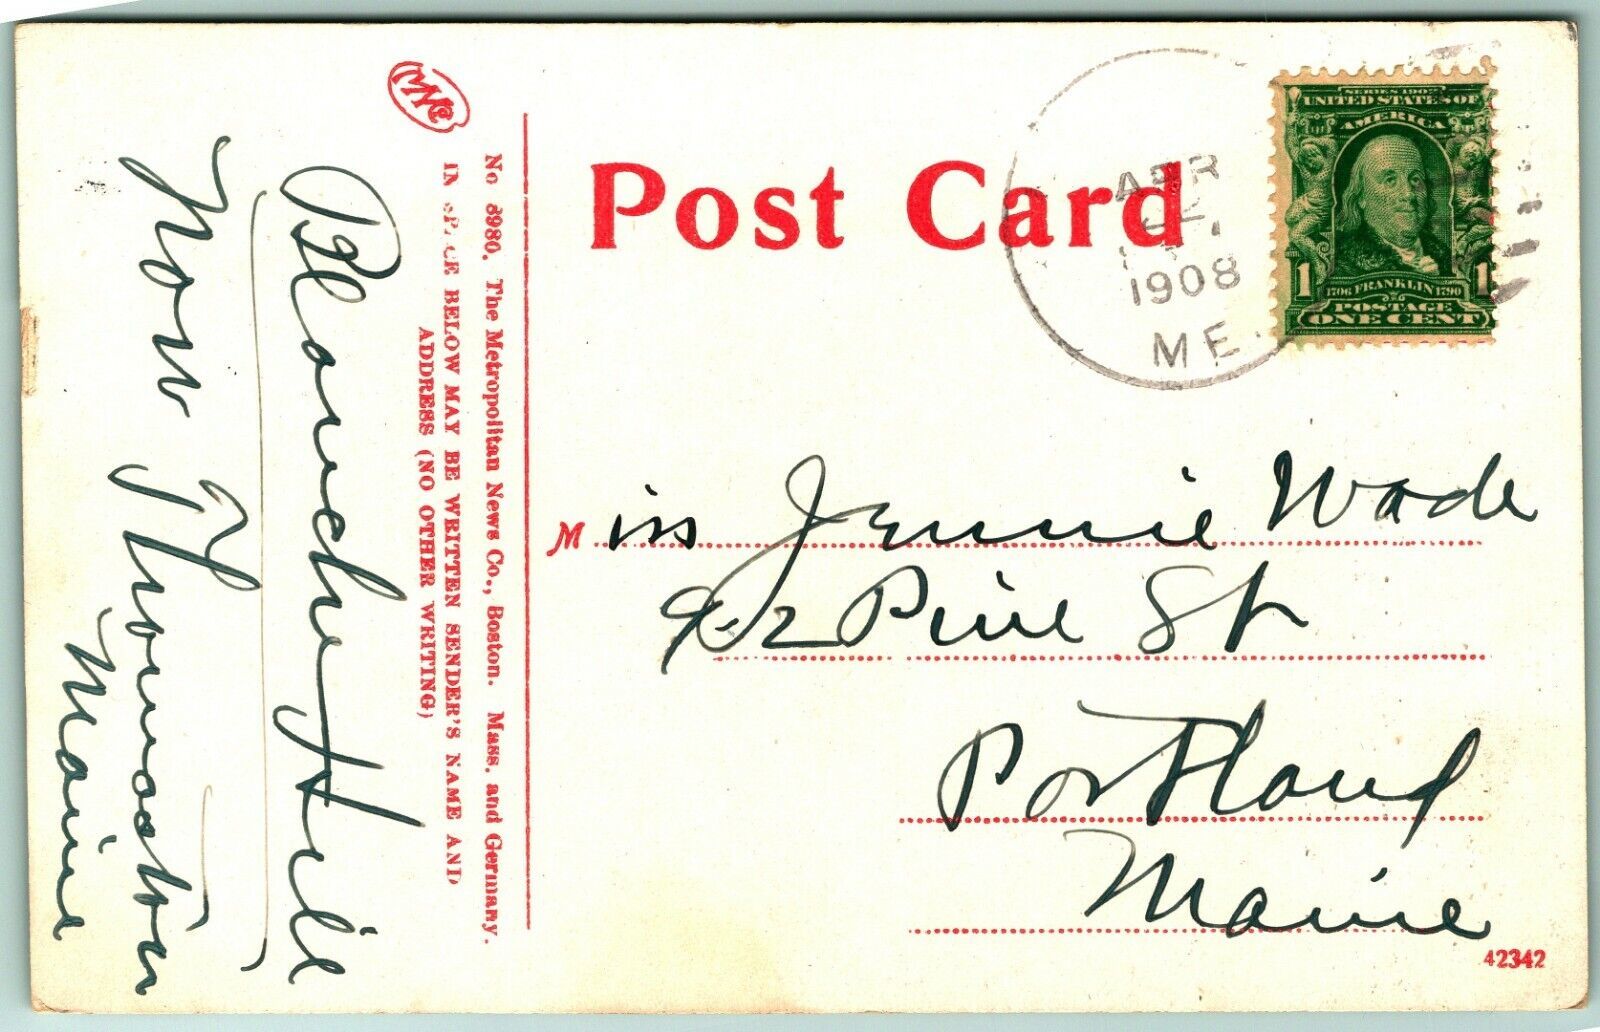 Post Card
APR
1908
ME.
SERIES 1902
UNITED STATES OF
AMERICA
1 1
1706 FRANKLIN 1790
POSTAGE
ONE CENT
No 8980. The Metropolitan News Co., Boston. Mass. and Germany.
IN SPACE BELOW MAY BE WRITTEN SENDER'S NAME AND
ADDRESS (NO OTHER WRITING)
Blanche Hill
Now Thomaston
Maine
Miss Jennie Wade
Pine St
Portland
Maine
42342